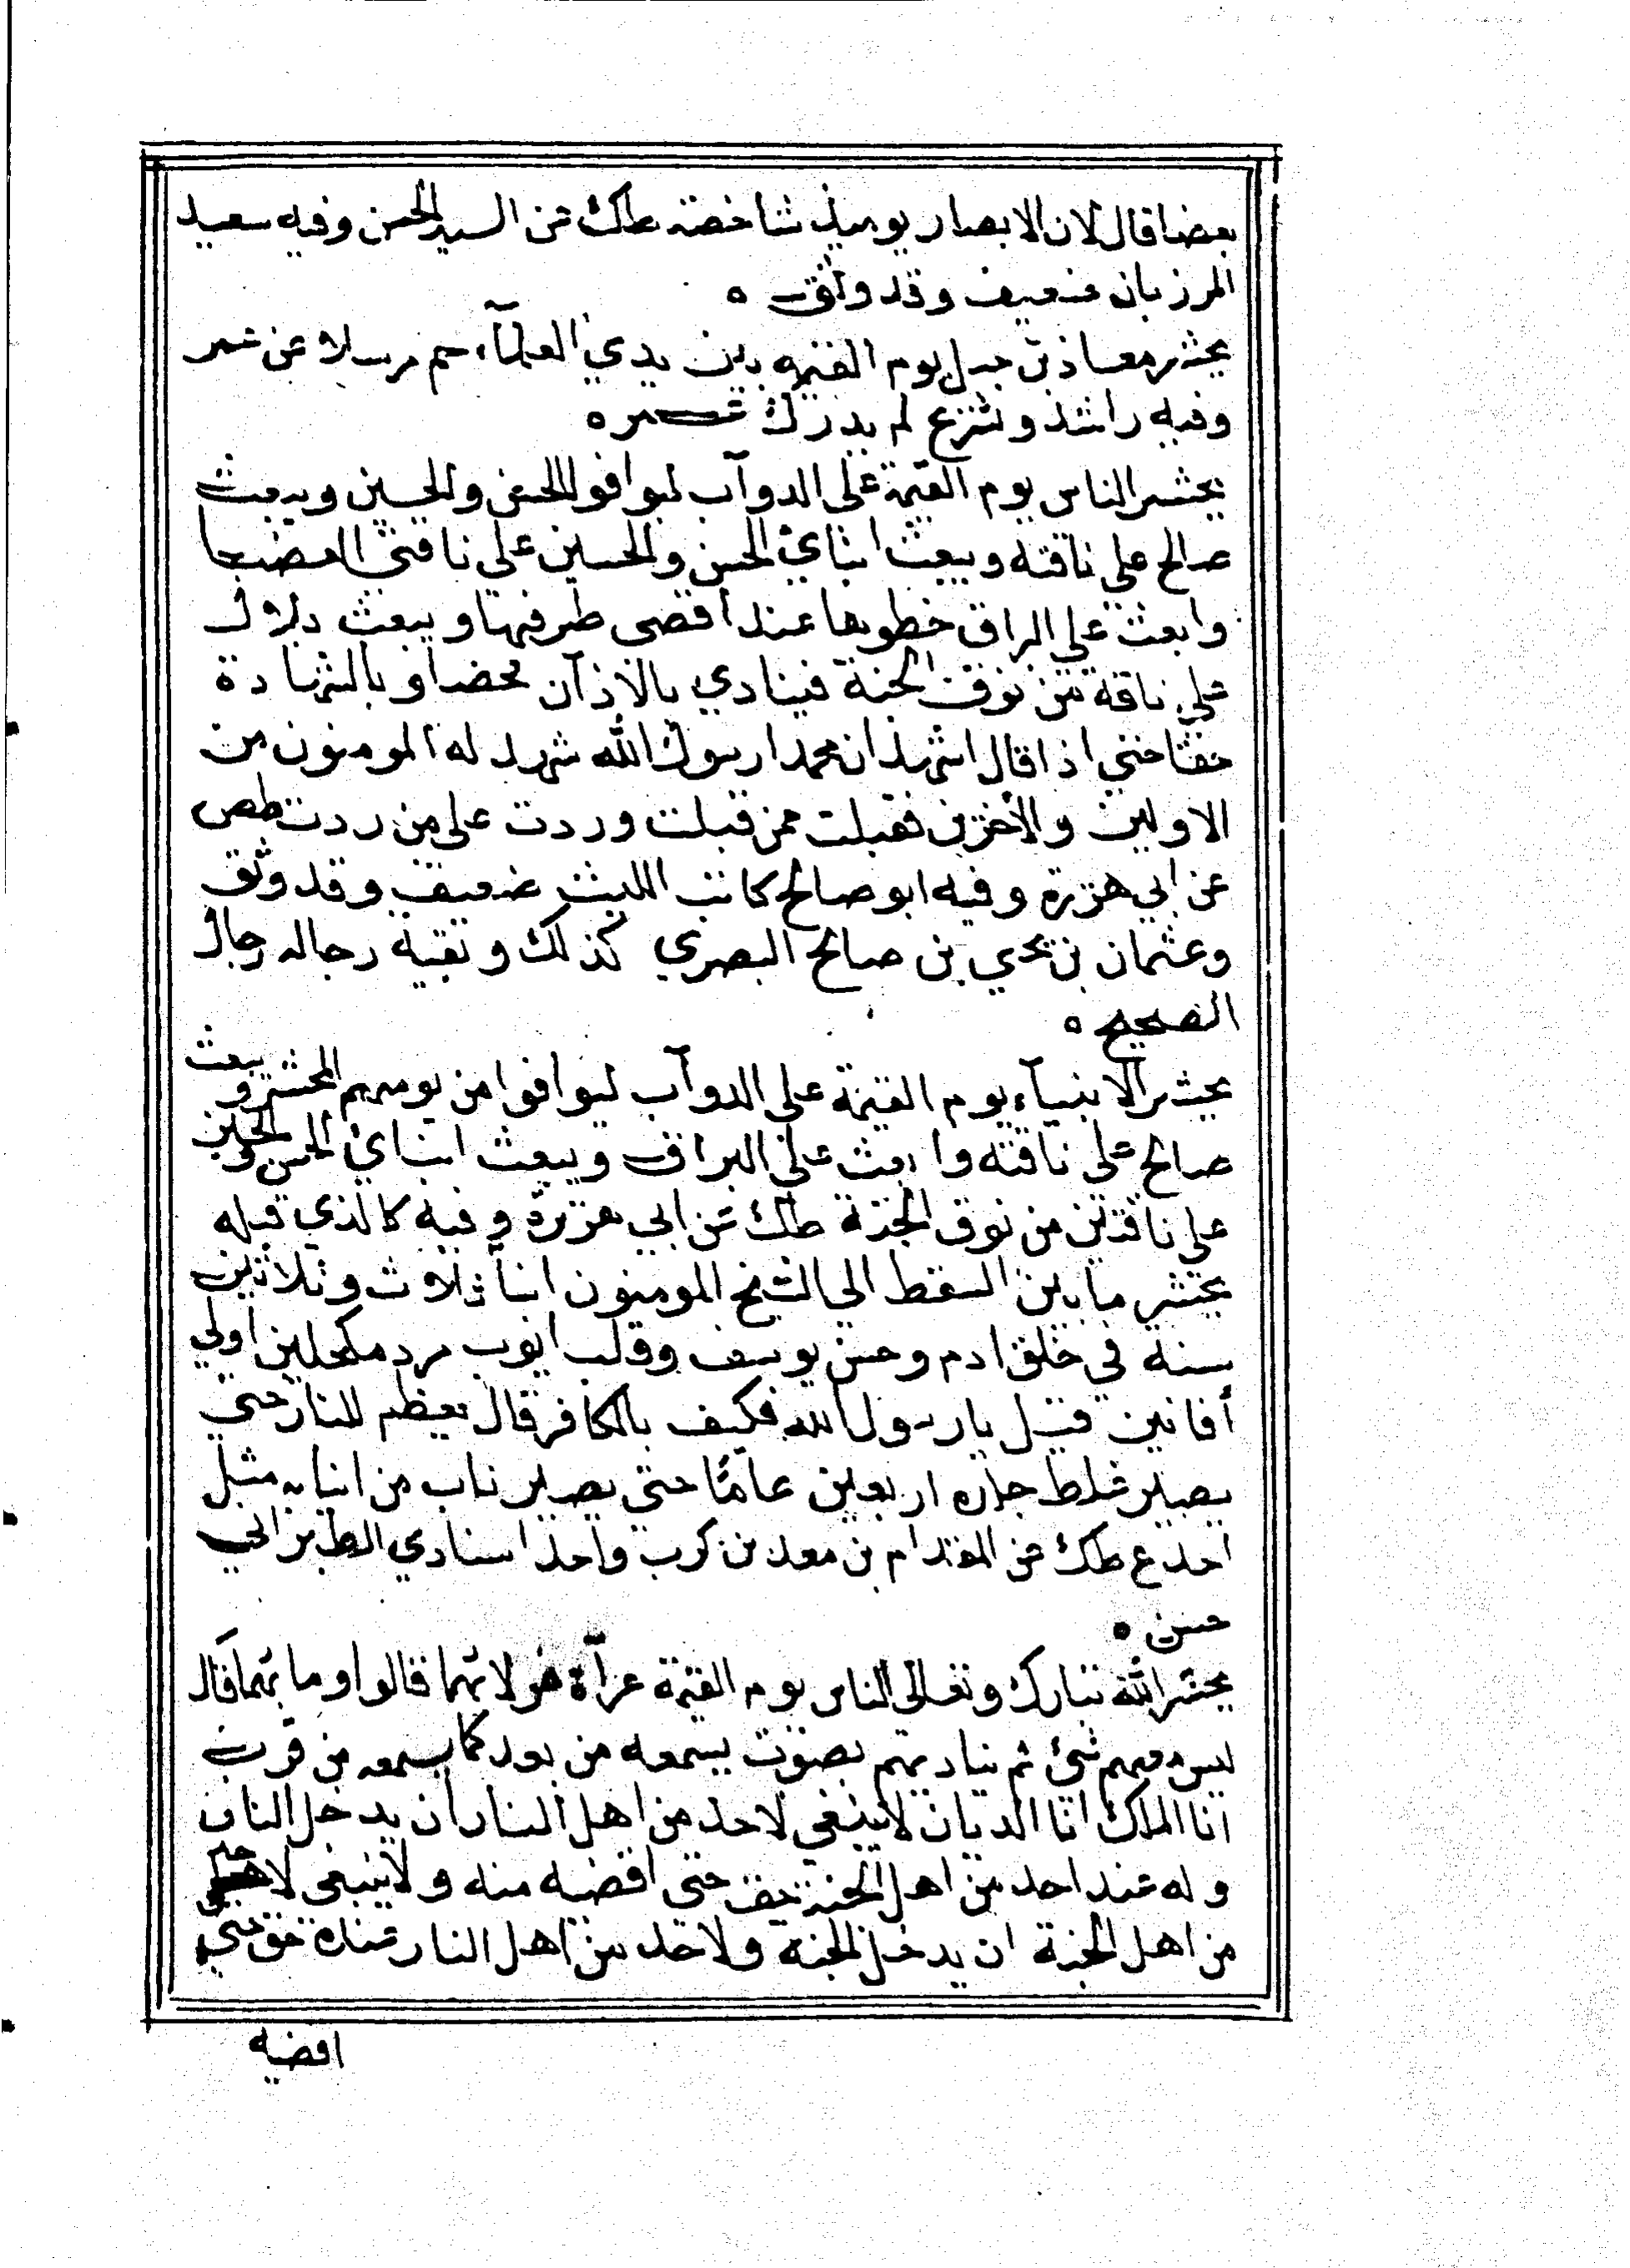 بعضا قال لان الابصار يوميذ شاخصة طك عن السيد الحسن وفيه سعيد
المرزبان ضعيف وقد وثق ه
يحشر معاذ بن جبل يوم القيمة بين يدي العلمآء حم مرسلا عن عمر
وفيه راشد وشريح لم يدرك عمر ه
يحشر الناس يوم القيمة على الدوآب ليوافوا الحسن والحسين ويبعث
صالح على ناقته ويبعث ابناي الحسن والحسين على ناقتي العضبا
وابعث على البراق خطوها عند اقصى طرفها ويبعث بلال
على ناقة من نوق الجنة فينادي بالاذآن محضا وبالشهادة
حقا حتى اذا قال اشهد ان محمدا رسول الله شهد له المومنون من
الاولين والأخرين فقبلت ممن قبلت وردت على من ردت طص
عن ابي هريرة وفيه ابو صالح كاتب الليث ضعيف وقد وثق
وعثمان بن يحي بن صالح البصري كذلك وبقية رجاله رجال
الصحيح ه
يحشر الانبيآء يوم القيمة على الدوآب ليوافوا من يومهم المحشر ويبعث
صالح على ناقته وابعث على البراق ويبعث ابناي الحسن والحسين
على ناقتين من نوق الجنة طك عن ابي هريرة وفيه كالذي قبله
يحشر ما بين السقط الى الشيخ المومنون ابنآ ثلاث وثلاثين
سنة في خلق ادم وحسن يوسف وقلب ايوب مرد مكحلين اولي
أفانين قيل يا رسول الله فكيف بالكافر قال يعظم للنار حتى
يصير غلظ جلده اربعين عامًا حتى يصير ناب من انيابه مثل
احد ع طك عن المقدام بن معد بن كرب واحد اسنادي الطبراني
حسن ه
يحشر الله تبارك وتعالى الناس يوم القيمة عرآة غرلا بهما قالوا وما بهما قال
ليس معهم شئ ثم يناديهم بصوت يسمعه من بعد كما يسمعه من قرب
انا الملك انا الديان لا ينبغي لاحد من اهل النار ان يدخل النار
وله عند احد من اهل الجنة حق حتى اقضه منه ولا ينبغي لاحد
من اهل الجنة ان يدخل الجنة ولاحد من اهل النار عنده حق حتى
اقضيه